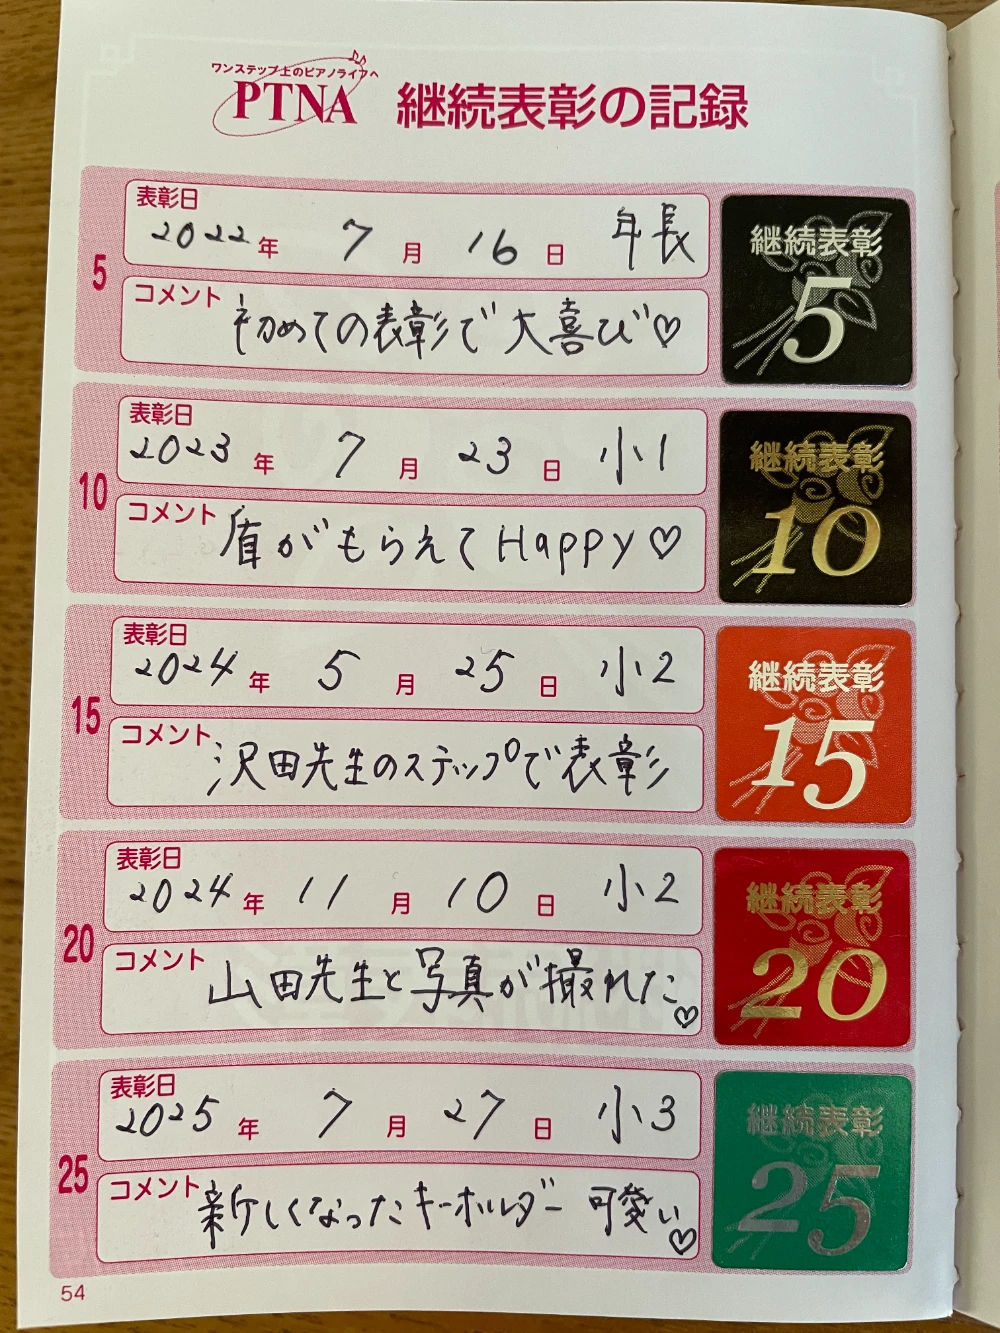 ワンステップ上のピアノライフへ
PTNA 継続表彰の記録
5
表彰日
2022年 7月 16日 年長
コメント 初めての表彰で大喜び♡
継続表彰
5
10
表彰日
2023年 7月 23日 小1
コメント 盾がもらえてHappy♡
継続表彰
10
15
表彰日
2024年 5月 25日 小2
コメント 沢田先生のステップで表彰
継続表彰
15
20
表彰日
2024年 11月 10日 小2
コメント 山田先生と写真が撮れた♡
継続表彰
20
25
表彰日
2025年 7月 27日 小3
コメント 新しくなったキーホルダー 可愛い♡
継続表彰
25
54